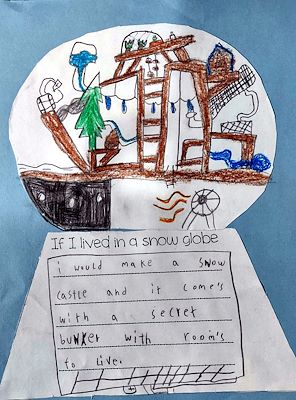 If I lived in a snow globe
i would make a snow
castle and it come's
with a secret
bunker with room's
to live.